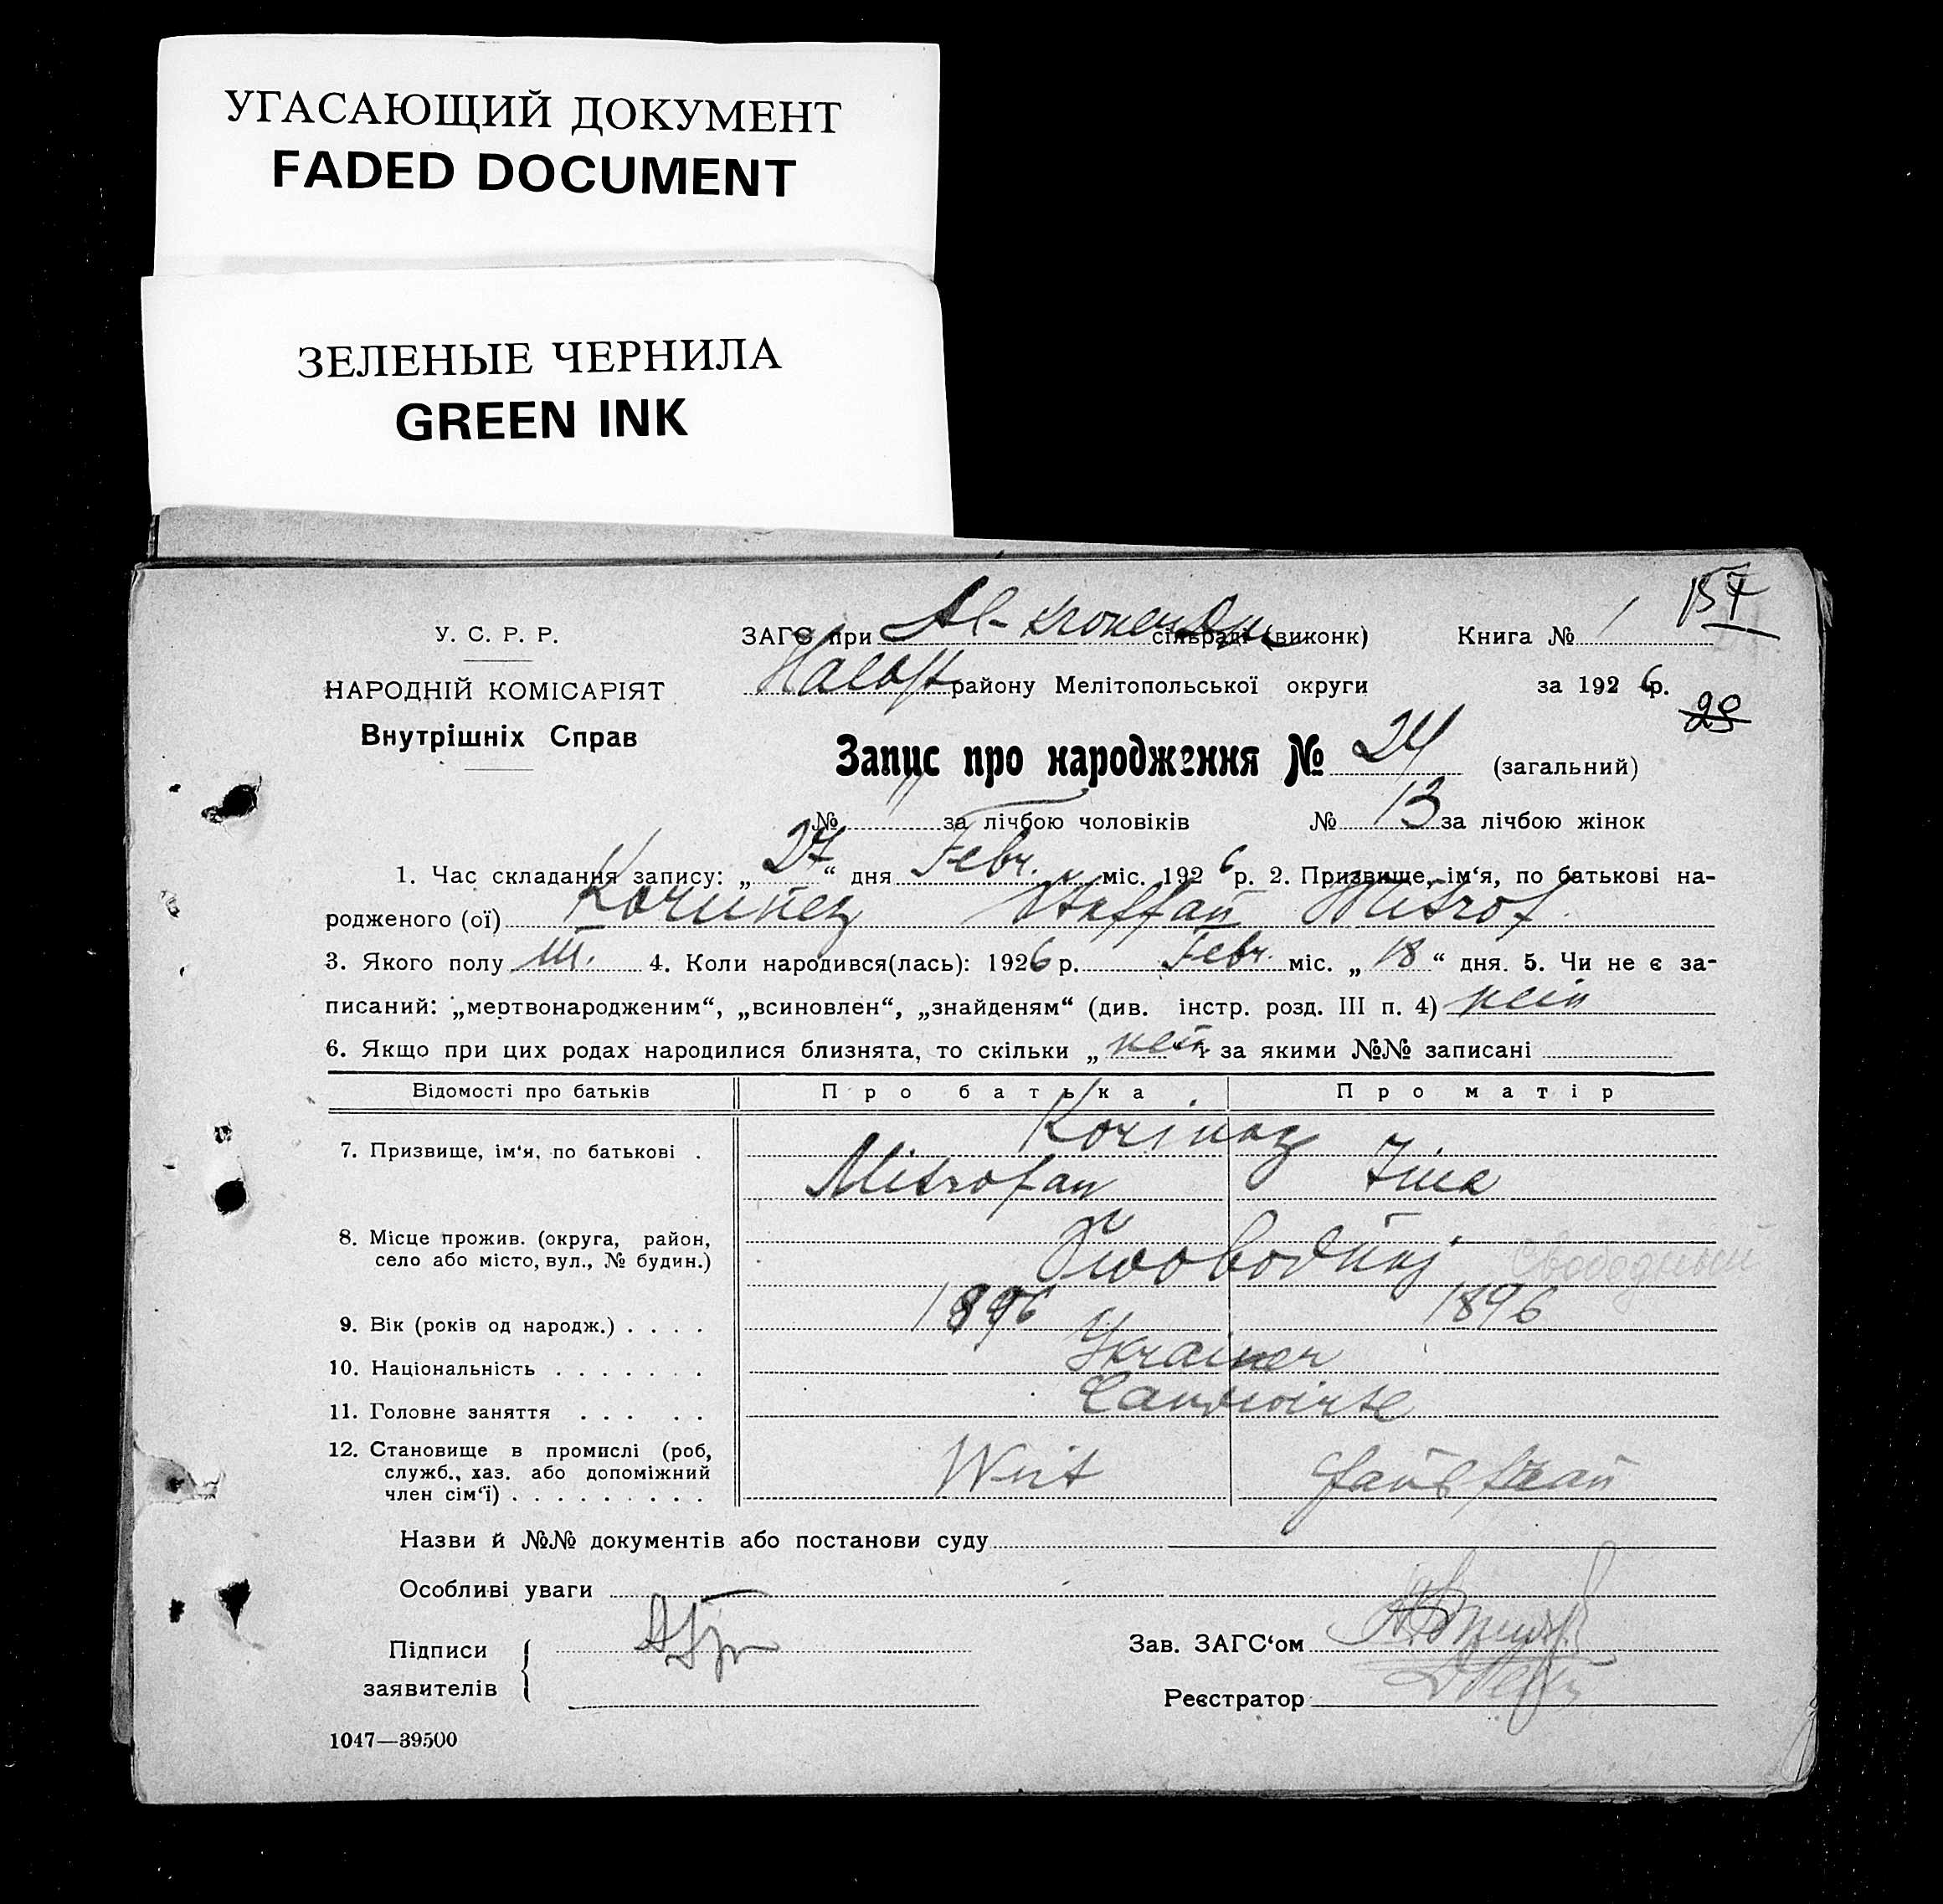 УГАСАЮЩИЙ ДОКУМЕНТ
FADED DOCUMENT
ЗЕЛЕНЫЕ ЧЕРНИЛА
GREEN INK
157
У. С. Р. Р.
ЗАГС при Al-Kronen сільраді (виконк) Книга № 1
НАРОДНІЙ КОМІСАРІЯТ
Halbst району Мелітопольської округи за 1926 р.
Внутрішніх Справ
28
Запис про народження № 24 (загальний)
№ 11 за лічбою чоловіків № 13 за лічбою жінок
1. Час складання запису: „27“ дня Febr. міс. 1926 р. 2. Призвище, ім‘я, по батькові на-
родженого (ої) Steffan Mitrof.
3. Якого полу m. 4. Коли народився(лась): 1926 р. Febr. міс. „18“ дня. 5. Чи не є за-
писаний: „мертвонародженим“, „всиновлен“, „знайденям“ (див. інстр. розд. III п. 4) nein
6. Якщо при цих родах народилися близнята, то скільки „nein і за якими №№ записані
Відомості про батьків Про батька Про матір
7. Призвище, ім‘я, по батькові . Korinez
Mitrofan
8. Місце прожив. (округа, район,
село або місто, вул., № будин.) Swobodnij Свободный
9. Вік (років од народж.) . . . . 1896 1896
10. Національність . . . . . . . Ukrainer
11. Головне заняття . . . . . Landwirte
12. Становище в промислі (роб,
служб., хаз. або допоміжний Wirt Hausfrau
член сім‘ї) . . . . . . . . .
Назви й №№ документів або постанови суду
Особливі уваги
Підписи
заявителів
Зав. ЗАГС‘ом
Реєстратор
1047—39500